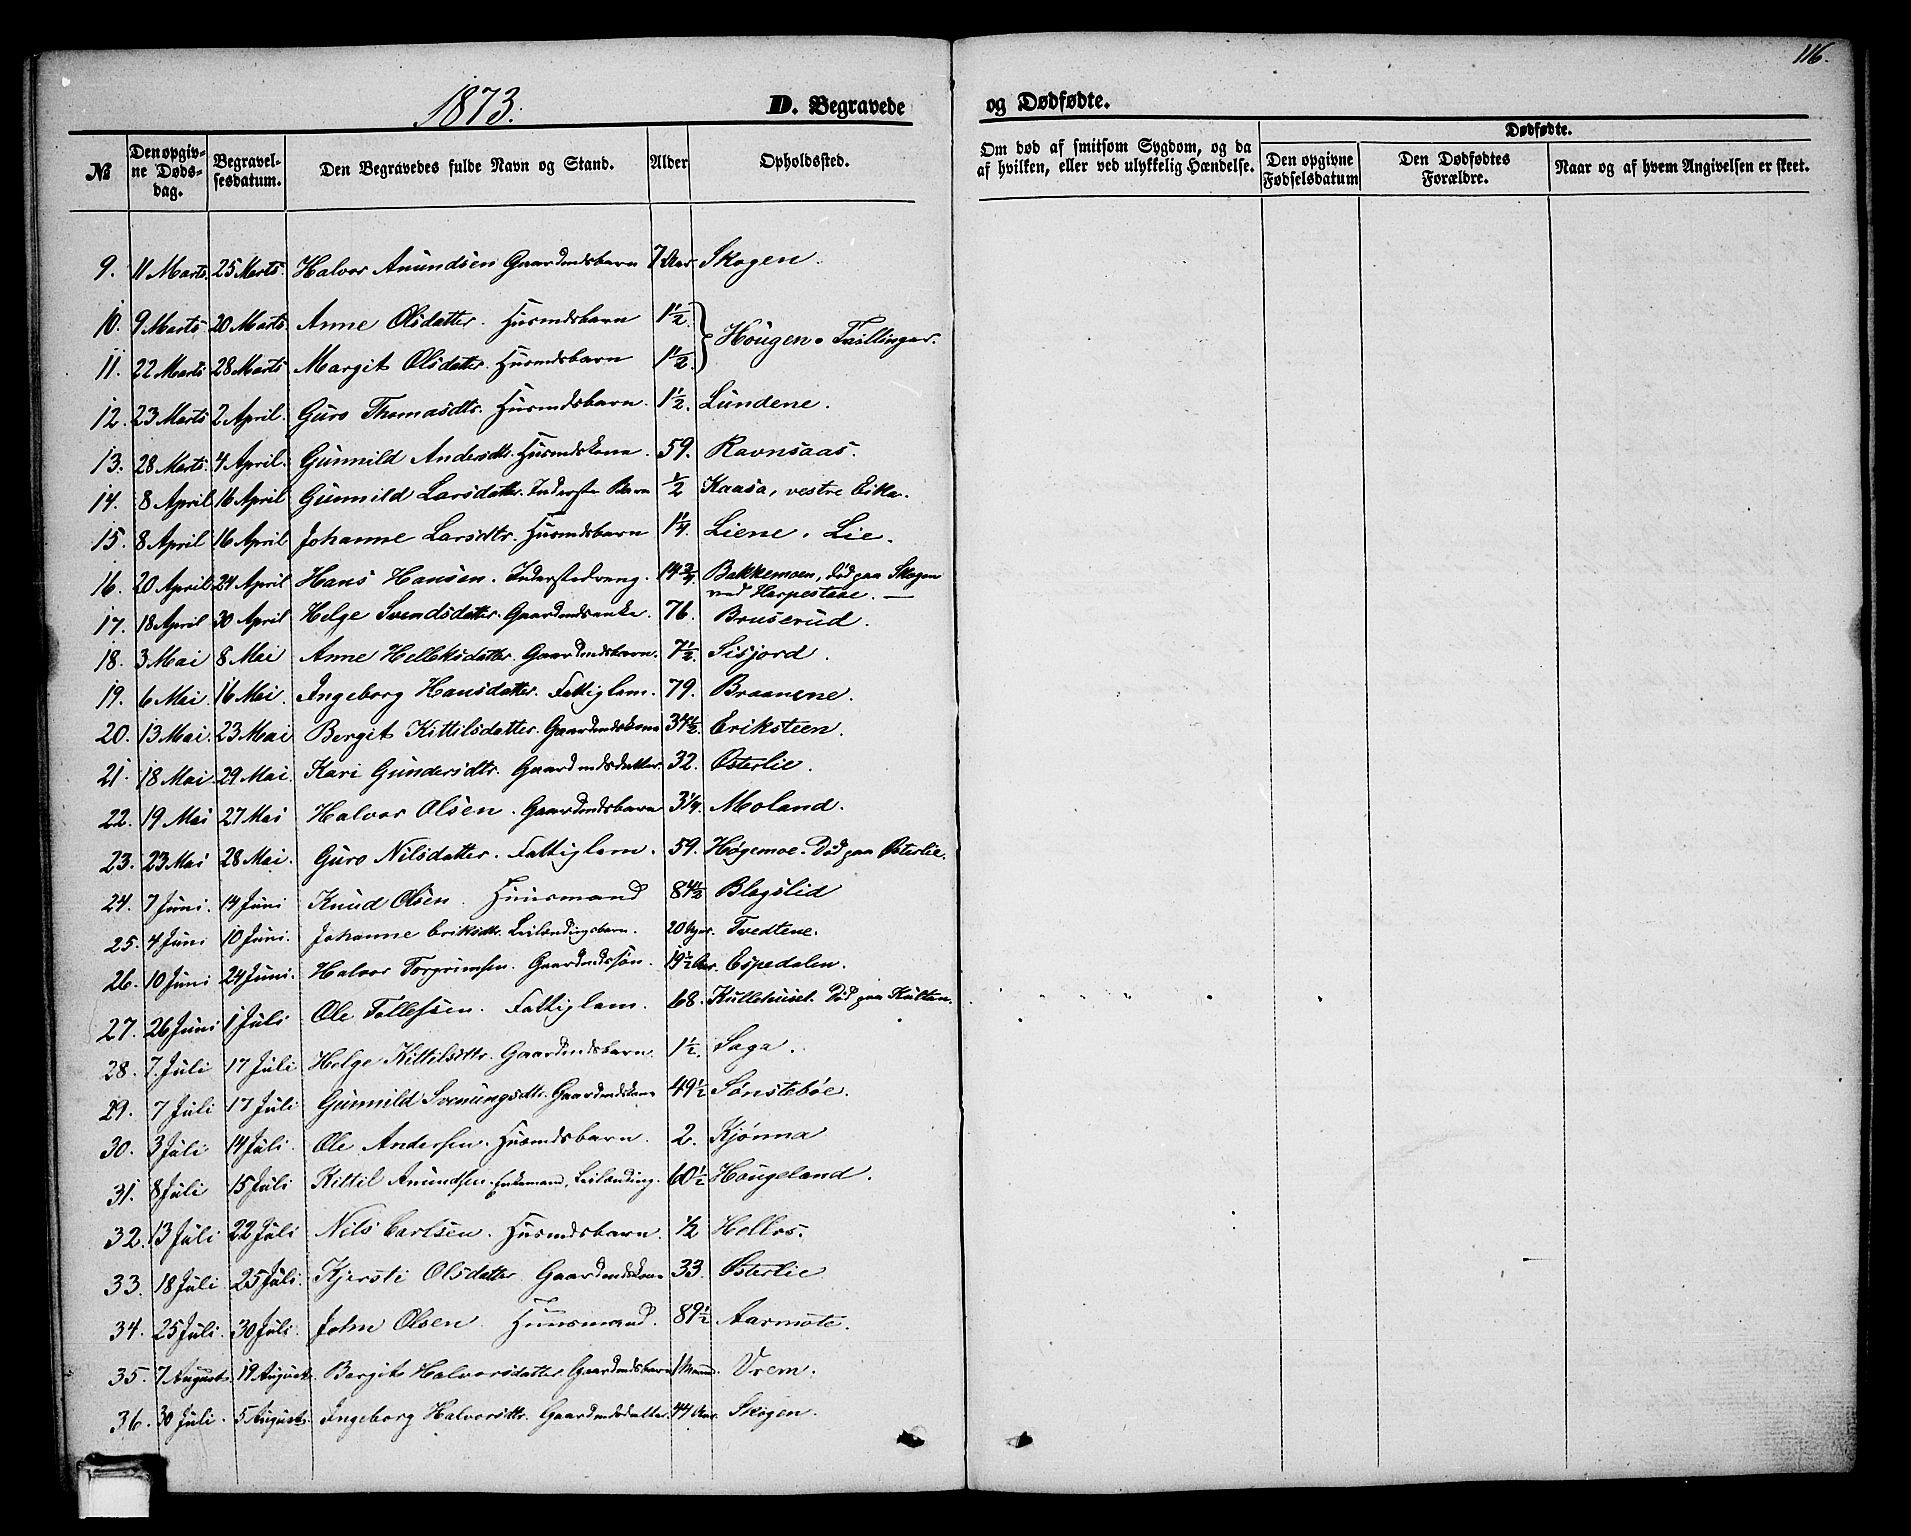 116.
1873.
D. Begravede og Dødfødte.
№ Den opgivne Dødsdag. Begravelsesdatum. Den Begravedes fulde Navn og Stand. Alder Opholdssted. Om død af smitsom Sygdom, og da af hvilken, eller ved ulykkelig Hændelse. Dødfødte. Den opgivne Fødselsdatum Den Dødfødtes Forældre. Naar og af hvem Angivelsen er skeet.
9. 11 Marts. 25 Marts. Halvor Anundsen Gaardmdsbarn 7 Aar. Skogen.
10. 9 Marts 20 Marts. Anne Olsdatter. Husmdsbarn 1½.
Hougen. Tvillinger.
11. 22 Marts 28 Marts Margit Olsdatter. Husmdsbarn 1½.
12. 23 Marts 2 April. Guro Thomasdtr. Husmdsbarn. 1½. Lundene.
13. 28 Marts. 4 April. Gunnild Andersdtr. Husmdskone. 59. Ravnsaas.
14. 8 April 16 April Gunnild Larsdatter. Inderste Barn ½ Kaasa, vestre Eika.
15. 8 April 16 April Johanne Larsdtr. Husmdsbarn 1¼. Liene. Lie.
16. 20 April. 24 April Hans Hansen. Inderstedreng. 14¾. Bakkemoen, død paa Skogen
ved Harpestue. —
17. 18 April 30 April Helge Svendsdatter. Gaardmdsenke. 76. Bruserud.
18. 3 Mai 8 Mai Anne Helleksdatter. Gaardmdsbarn. 7½. Sisjord.
19. 6 Mai. 16 Mai. Ingeborg Hansdatter. Fattiglem. 79. Braanene.
20. 13 Mai. 23 Mai Bergit Kittilsdatter. Gaardmdskone 34½. Eriksteen.
21. 18 Mai 29 Mai. Kari Gundersdtr. Gaardmdsdatter. 32. Østerlie.
22. 19 Mai 27 Mai Halvor Olsen. Gaardmdsbarn 3¼. Moland.
23. 23 Mai 28 Mai. Guro Nilsdatter. Fattiglem. 59. Høgemoe. Død paa Østerlie.
24. 7 Juni. 14 Juni Knud Olsen. Huusmand 84½ Blegslid
25. 4 Juni 10 Juni. Johanne Eriksdtr. Leilændingsbarn. 20 Uger. Tvedtene.
26. 10 Juni 24 Juni. Halvor Torgrimsen. Gaardmdssøn 19½ Aar. Espedalen.
27. 26 Juni 1 Juli Ole Tollefsen. Fattiglem. 68. Kullehuset. Død paa Kulten.
28. 7. Juli 17 Juli Helge Kittilsdtr. Gaardmdsbarn. 1½. Saga.
29. 7 Juli 17 Juli Gunnild Svenungsdtr. Gaardmdskone 49½ Sønstebøe.
30. 3 Juli 14 Juli. Ole Andersen. Husmdsbarn. 2. Kjønna
31. 8 Juli 15 Juli Kittil Anundsen. Enkemand, Leilænding. 60½ Hougeland.
32. 13 Juli 22 Juli Nils Carlsen. Husmdsbarn. ½ Hellos.
33. 18 Juli. 25 Juli. Kjersti Olsdatter Gaardmdskone 33. Østerlie
34. 25 Juli. 30 Juli. John Olsen. Huusmand. 89½ Aarmote.
35. 7 August. 19 August. Bergit Halvorsdatter Gaardmdsbarn 1 Maaned. Vrem.
36. 30 Juli. 5 August. Ingeborg Halvorsdtr. Gaardmdsdatter. 44 Aar. Skogen.